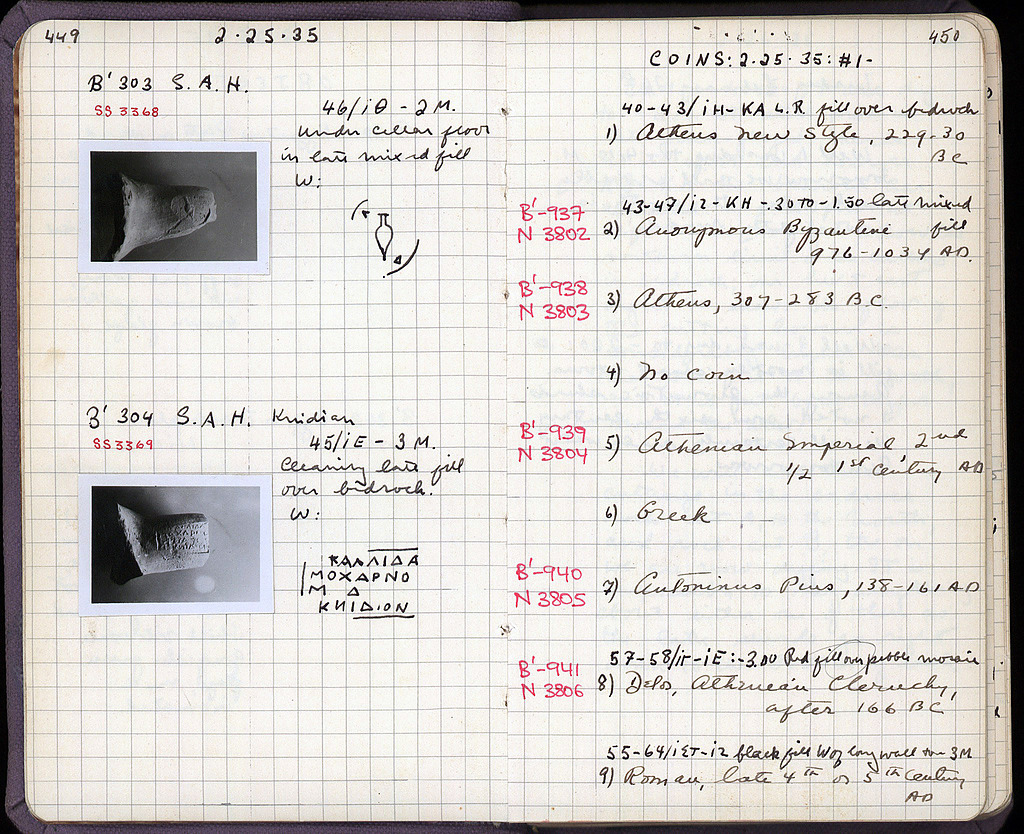 449 2·25·35
B' 303 S.A.H.
SS 3368
46/ΙΘ - 2 M.
under cellar floor
in late mixed fill
W:
B' 304 S.A.H. Knidian
SS 3369
45/ΙΕ - 3 M.
Cleaning late fill
over bedrock.
W:
ΚΑΛΛΙΔΑ
ΜΟΧΑΡΝΟ
Μ Δ
ΚΝΙΔΙΟΝ
450
COINS: 2·25·35: #1-
40-43/ΙΗ-ΚΑ L.R. fill over bedrock
1) Athens New Style, 229-30
BC
43-47/ΙΖ-ΚΗ -.30 to -1.50 late mixed
fill
B'-937
N 3802
2) Anonymous Byzantine
976-1034 AD.
B'-938
N 3803
3) Athens, 307-283 B.C.
4) No coin
B'-939
N 3804
5) Athenian Imperial, 2nd
1/2 1st Century AD
6) Greek
B'-940
N 3805
7) Antoninus Pius, 138-161 AD
57-58/ΙΓ-ΙΕ:-3.00 Red fill over pebble mosaic
B'-941
N 3806
8) Delos, Athenian Cleruchy,
after 166 BC
55-64/ΙΣΤ-ΙΖ black fill W of long wall 3M
9) Roman, late 4th or 5th Century
AD